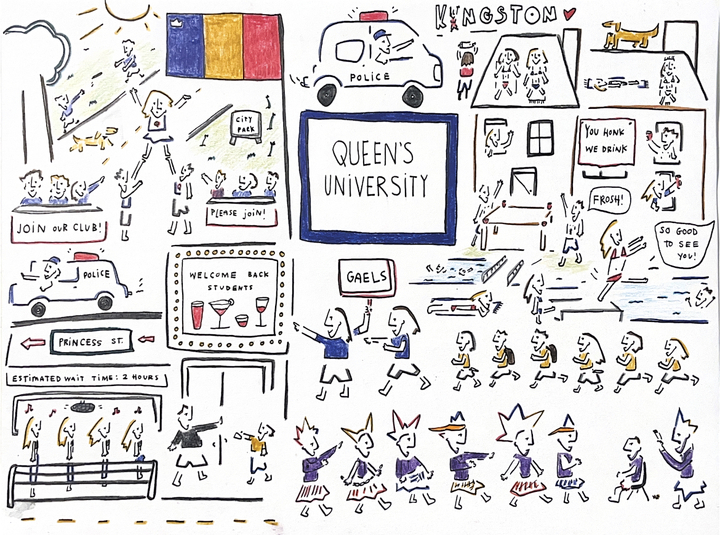 KINGSTON
POLICE
CITY
PARK
QUEEN'S
UNIVERSITY
YOU HONK
WE DRINK
FROSH!
SO GOOD
TO SEE
YOU!
JOIN OUR CLUB!
PLEASE JOIN!
POLICE
WELCOME BACK
STUDENTS
GAELS
PRINCESS ST.
ESTIMATED WAIT TIME: 2 HOURS